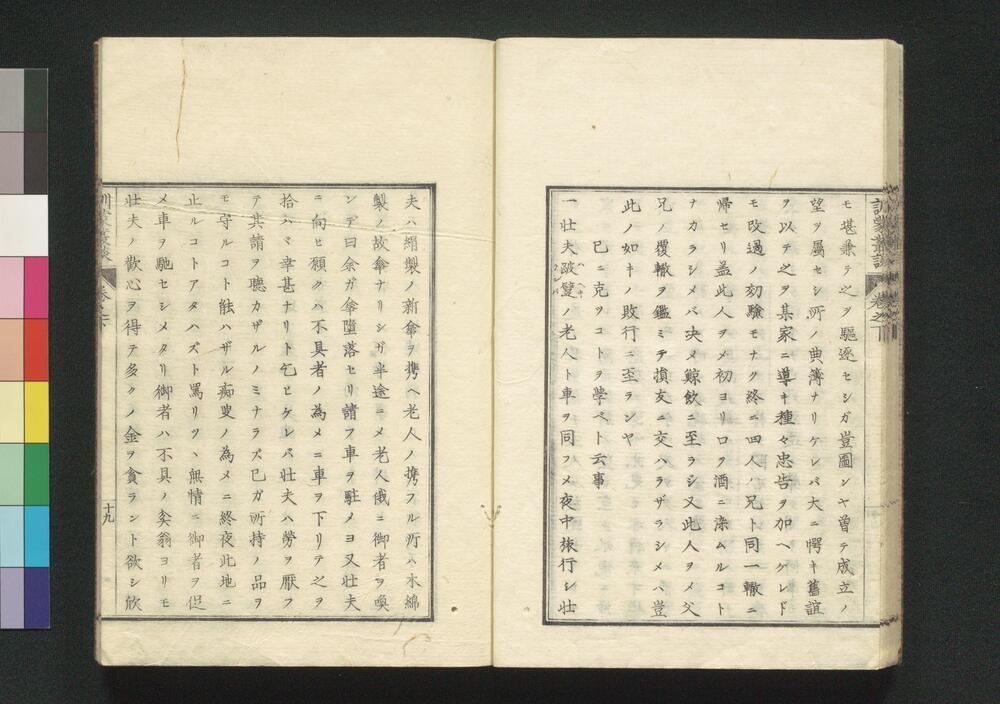 モ堪兼テ之ヲ驅逐セシガ豈圖ンヤ曽テ成立ノ
望ヲ屬セシ所ノ典簿ナリケレバ大ニ愕キ舊誼
ヲ以テ之ヲ某家ニ導キ種々忠告ヲ加ヘケレド
モ改過ノ効驗モナク終ニ四人ノ兄ト同一轍ニ
帰セリ葢此人ヲメ初ヨリ口ヲ酒ニ染ムルコト
ナカラシメバ决メ鯨飲ニ至ラシ又此人ヲメ父
兄ノ覆轍ヲ鑑ミテ損友ニ交ハラザラシメハ豈
此ノ如キノ敗行ニ至ランヤ
己ニ克ツコトヲ學ベト云事
一壮夫跛躄ノ老人ト車ヲ同フメ夜中旅行シ壮
夫ハ絹製ノ新傘ヲ携ヘ老人ノ携フル所ハ木綿
製ノ故傘ナリシガ半途ニメ老人俄ニ御者ヲ喚
ンデ曰余ガ傘墮落セリ請フ車ヲ駐メヨ又壮夫
ニ向ヒ願クハ不具者ノ為メニ車ヲ下リテ之ヲ
拾ハヾ幸甚ナリト乞ヒケレバ壮夫ハ勞ヲ厭フ
テ其請ヲ聴カザルノミナラズ已ガ所持ノ品ヲ
モ守ルコト能ハザル痴叟ノ為メニ終夜此地ニ
止ルコトアタハズト罵リツヽ無情ニ御者ヲ促
メ車ヲ馳セシメタリ御者ハ不具ノ老翁ヨリモ
壮夫ノ歡心ヲ得テ多クノ金ヲ貪ラント欲シ欣
十九